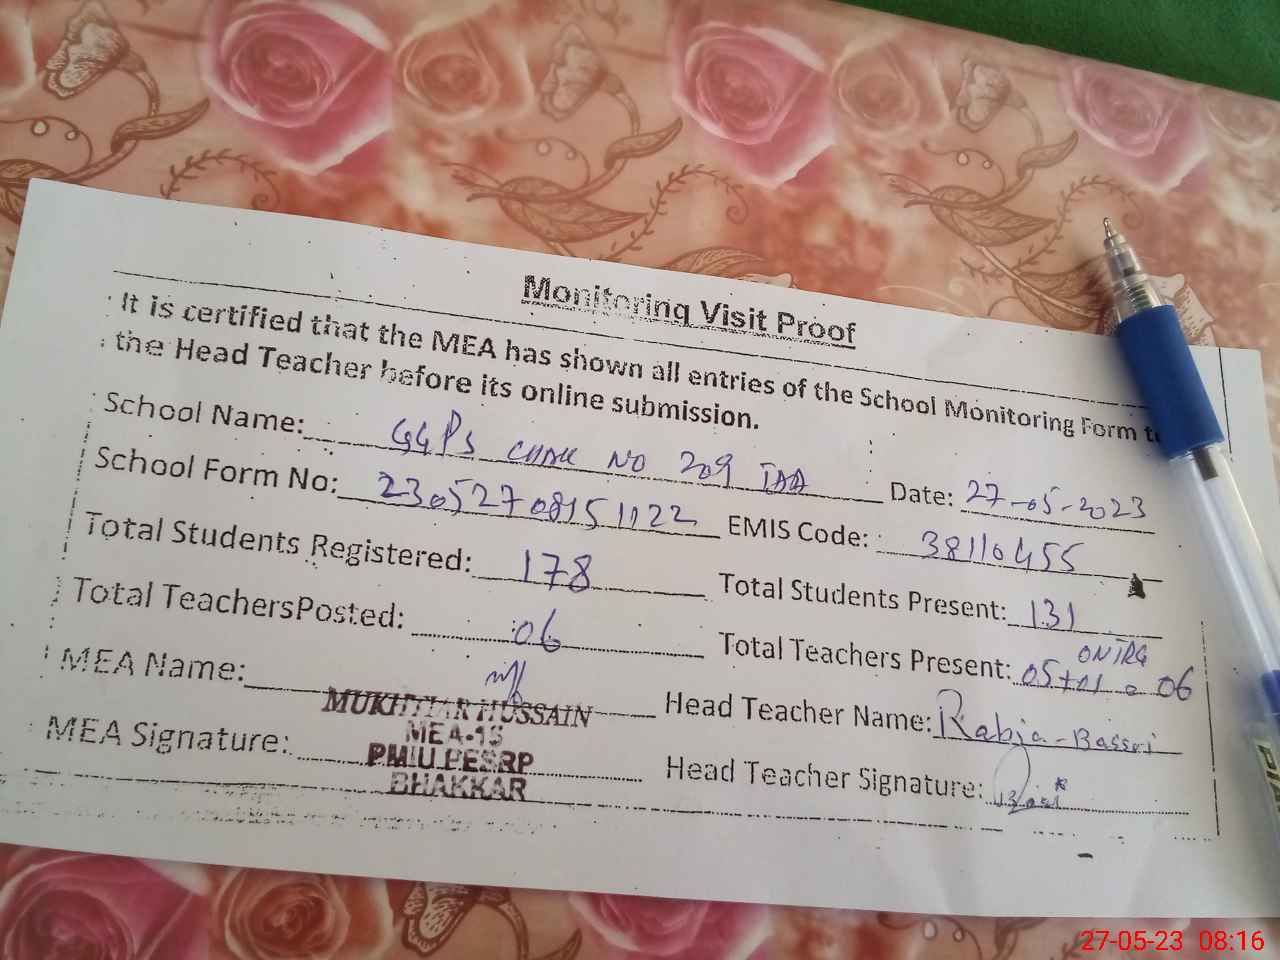 Monitoring Visit Proof
It is certified that the MEA has shown all entries of the School Monitoring Form to
the Head Teacher before its online submission.
School Name: GGPS CHAK NO 209 TDA Date: 27-05-2023
School Form No: 23052708151122 EMIS Code: 38110455
Total Students Registered: 178 Total Students Present: 131
Total TeachersPosted: 06 Total Teachers Present: 05+01 = 06
MEA Name: Head Teacher Name: Rabia-Bassri
MUKHTIAR HUSSAIN
MEA-15
MEA Signature: PMIU PESRP Head Teacher Signature:
BHAKKAR
27-05-23 08:16